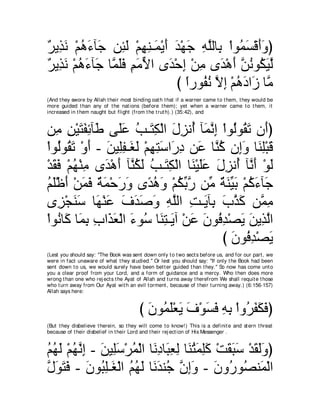 (وَأَقْسَمُواْ بِاللَّهِ جَهْدَ أَيْمَـنِهِمْ لَئِن جَآءَهُمْ نَذِيرٌ
لَّيَكُونُنَّ أَهْدَى مِنْ إِحْدَى الاٍّمَمِ فَلَمَّا جَآءَهُمْ نَذِيرٌ
مَّا زَادَهُمْ إِلاَّ نُفُوراً )
(And they swore by Allah their most binding oath that if a warner came to them, they would be
more guided than any of the nations (before them); yet when a warner came to them, it
increased in them naught but flight (from the truth).) (35:42), and
(أَن تَقُولُواْ إِنَّمَآ أُنزِلَ الْكِتَـبُ عَلَى طَآئِفَتَيْنِ مِن
قَبْلِنَا وَإِن كُنَّا عَن دِرَاسَتِهِمْ لَغَـفِلِينَ - أَوْ تَقُولُواْ
لَوْ أَنَّآ أُنزِلَ عَلَيْنَا الْكِتَـبُ لَكُنَّآ أَهْدَى مِنْهُمْ فَقَدْ
جَآءَكُمْ بَيِّنَةٌ مِّن رَّبِّكُمْ وَهُدًى وَرَحْمَةٌ فَمَنْ أَظْلَمُ
مِمَّن كَذَّبَ بِآيَـتِ اللَّهِ وَصَدَفَ عَنْهَا سَنَجْزِى
الَّذِينَ يَصْدِفُونَ عَنْ آيَـتِنَا سُوءَ الْعَذَابِ بِمَا كَانُواْ
يَصْدِفُونَ )
(Lest you should say: "The Book was sent down only to two sects before us, and for our part, we
were in fact unaware of what they studied." Or lest you should say: "If only the Book had been
sent down to us, we would surely have been better guided than they." So now has come unto
you a clear proof from your Lord, and a form of guidance and a mercy. Who then does more
wrong than one who rejects the Ayat of Allah and turns away therefrom We shall requite those
who turn away from Our Ayat with an evil torment, because of their turning away.) (6:156-157)
Allah says here:
(فَكَفَرُواْ بِهِ فَسَوْفَ يَعْلَمُونَ )
(But they disbelieve therein, so they will come to know!) This is a definite and stern threat
because of their disbelief in their Lord and their rejection of His Messenger .
(وَلَقَدْ سَبَقَتْ كَلِمَتُنَا لِعِبَادِنَا الْمُرْسَلِينَ - إِنَّهُمْ لَهُمُ
الْمَنصُورُونَ - وَإِنَّ جُندَنَا لَهُمُ الْغَـلِبُونَ - فَتَوَلَّ